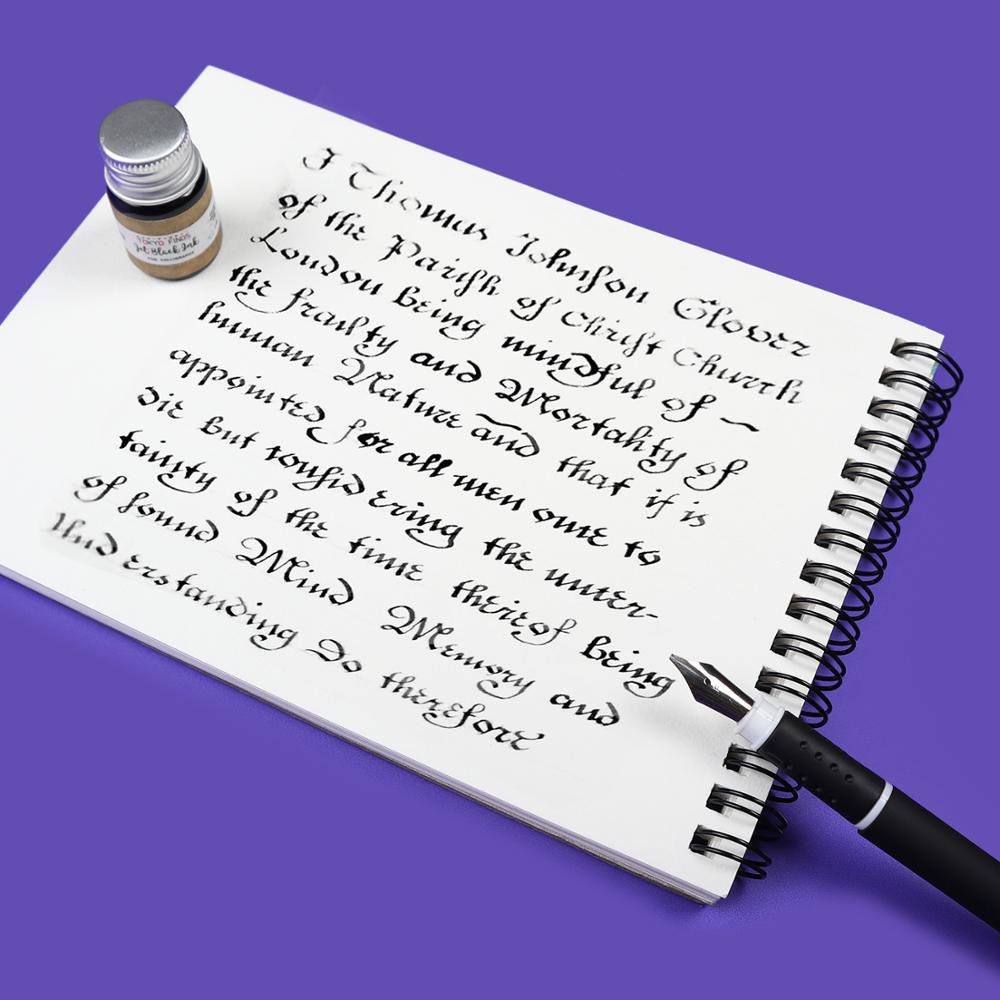 I Thomas Johnſon Glover
of the Pariſh of Chriſt Church
London being mindful of ~
the frailty and Mortality of
human Nature and that it is
appointed for all men once to
die but conſidering the uncer-
tainty of the time thereof being
of ſound Mind Memory and
Understanding Do therefore
TOKYO FINDS
Jet Black Ink
FOR CALLIGRAPHY